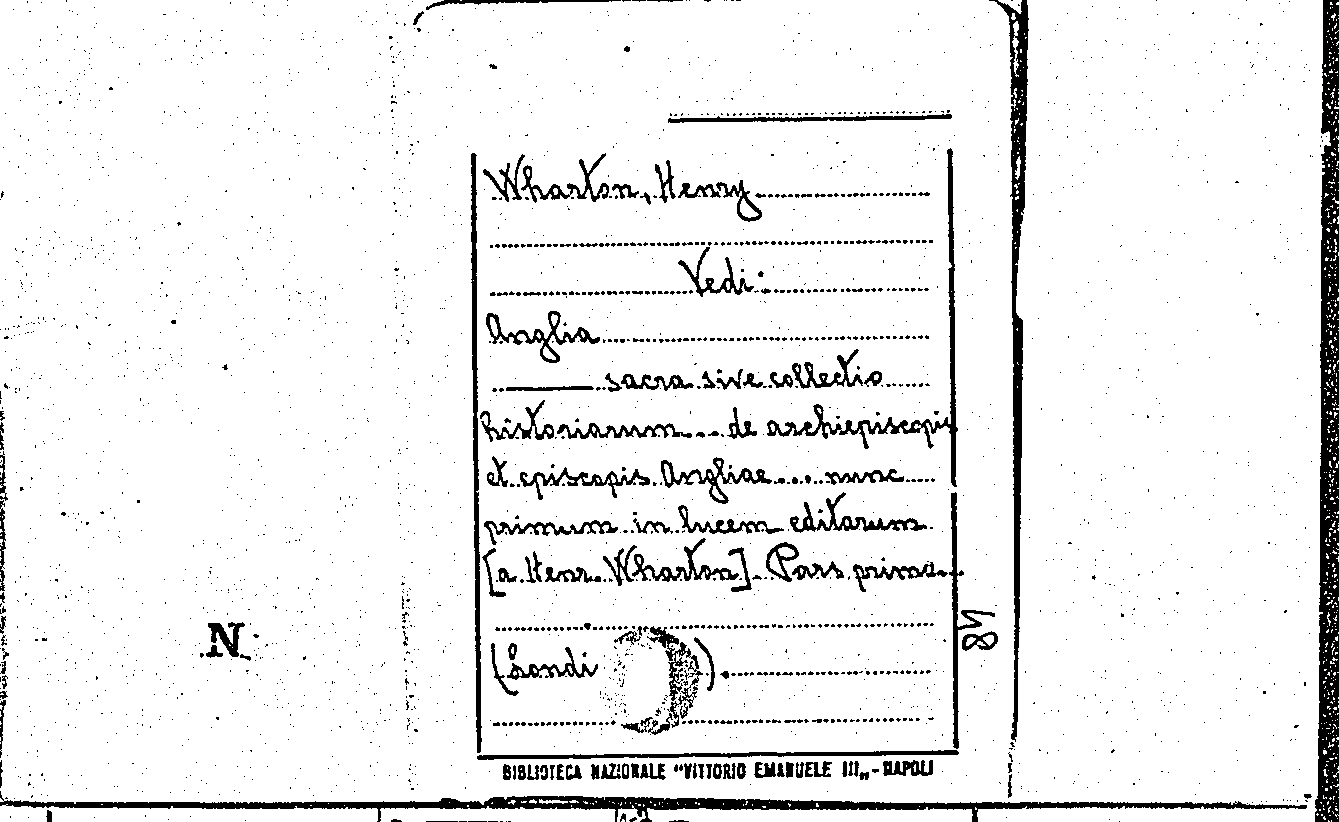 Wharton, Henry
Vedi:
Anglia
——— sacra sive collectio
historiarum... de archiepiscopis
et episcopis Angliae.... nunc
primum in lucem editarum
[a Henr. Wharton]. Pars prima.
(Londi ).
BIBLIOTECA NAZIONALE "VITTORIO EMANUELE III„ - NAPOLI
N